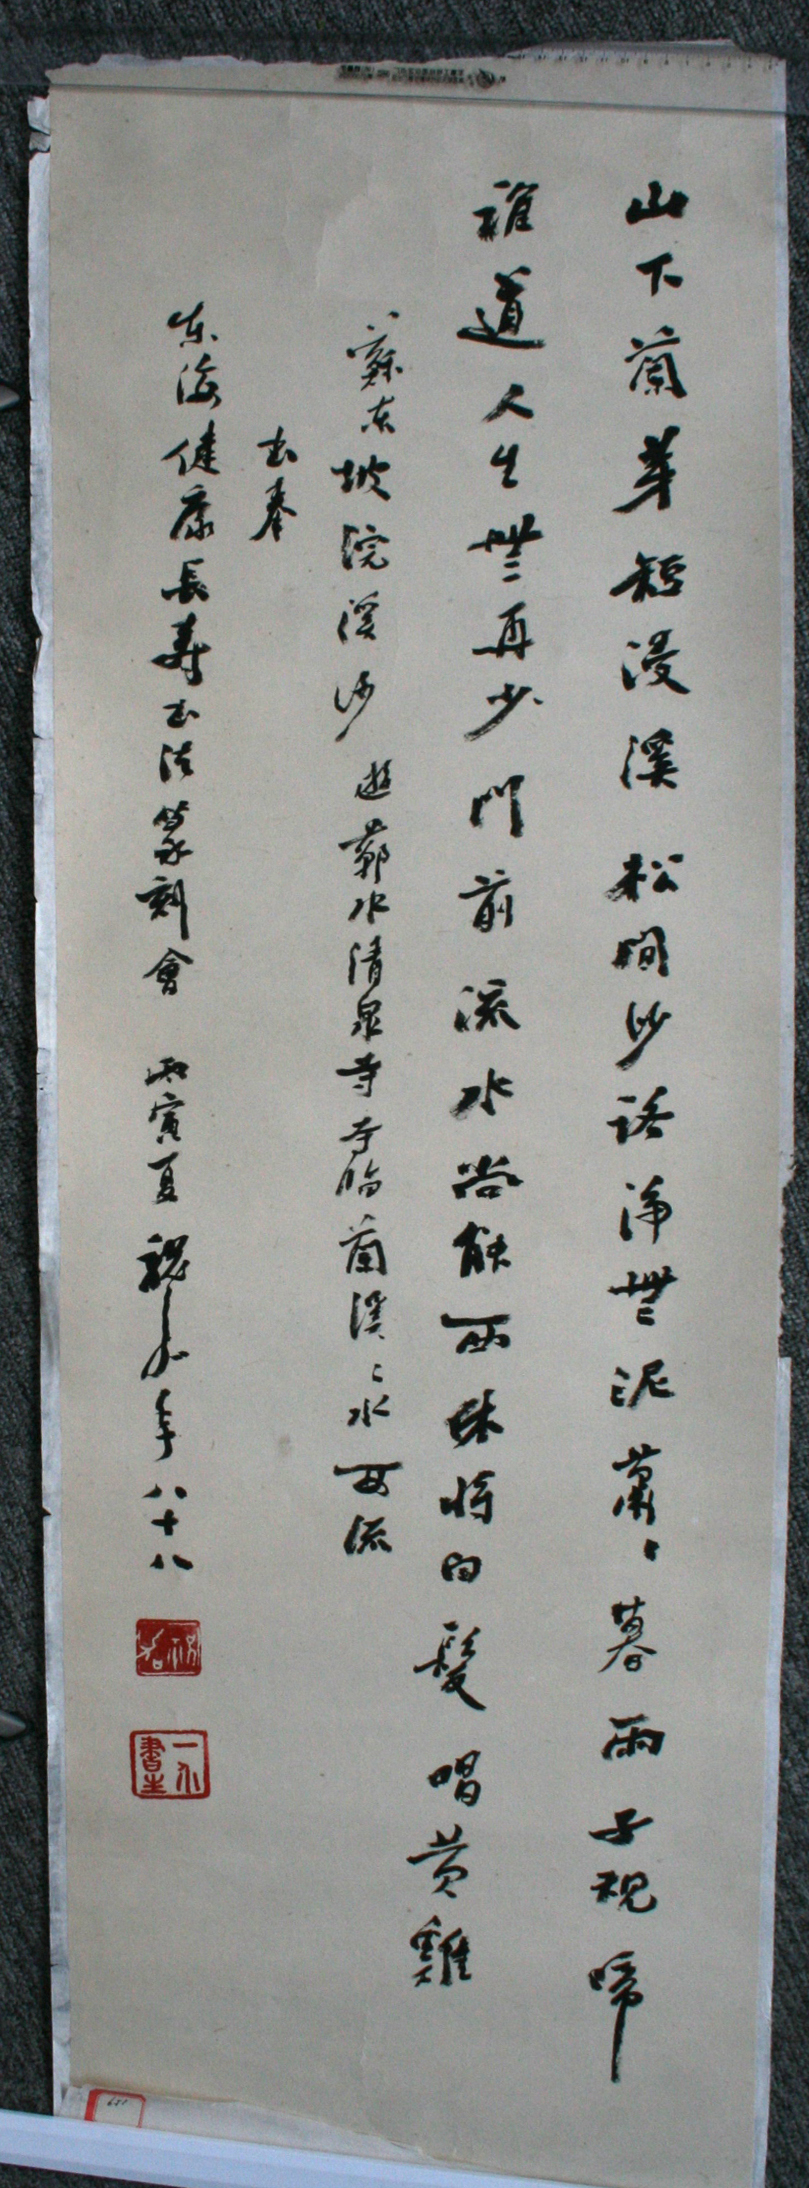 山下蘭芽短浸溪松間沙路淨無泥蕭〻暮雨子規啼
誰道人生無再少門前流水尚能西休將白髮唱黃雞
蘇東坡浣溪沙遊蘄水清泉寺寺臨蘭溪〻水西流
書奉
東海健康長壽書法篆刻會丙寅夏年八十八
一介書生